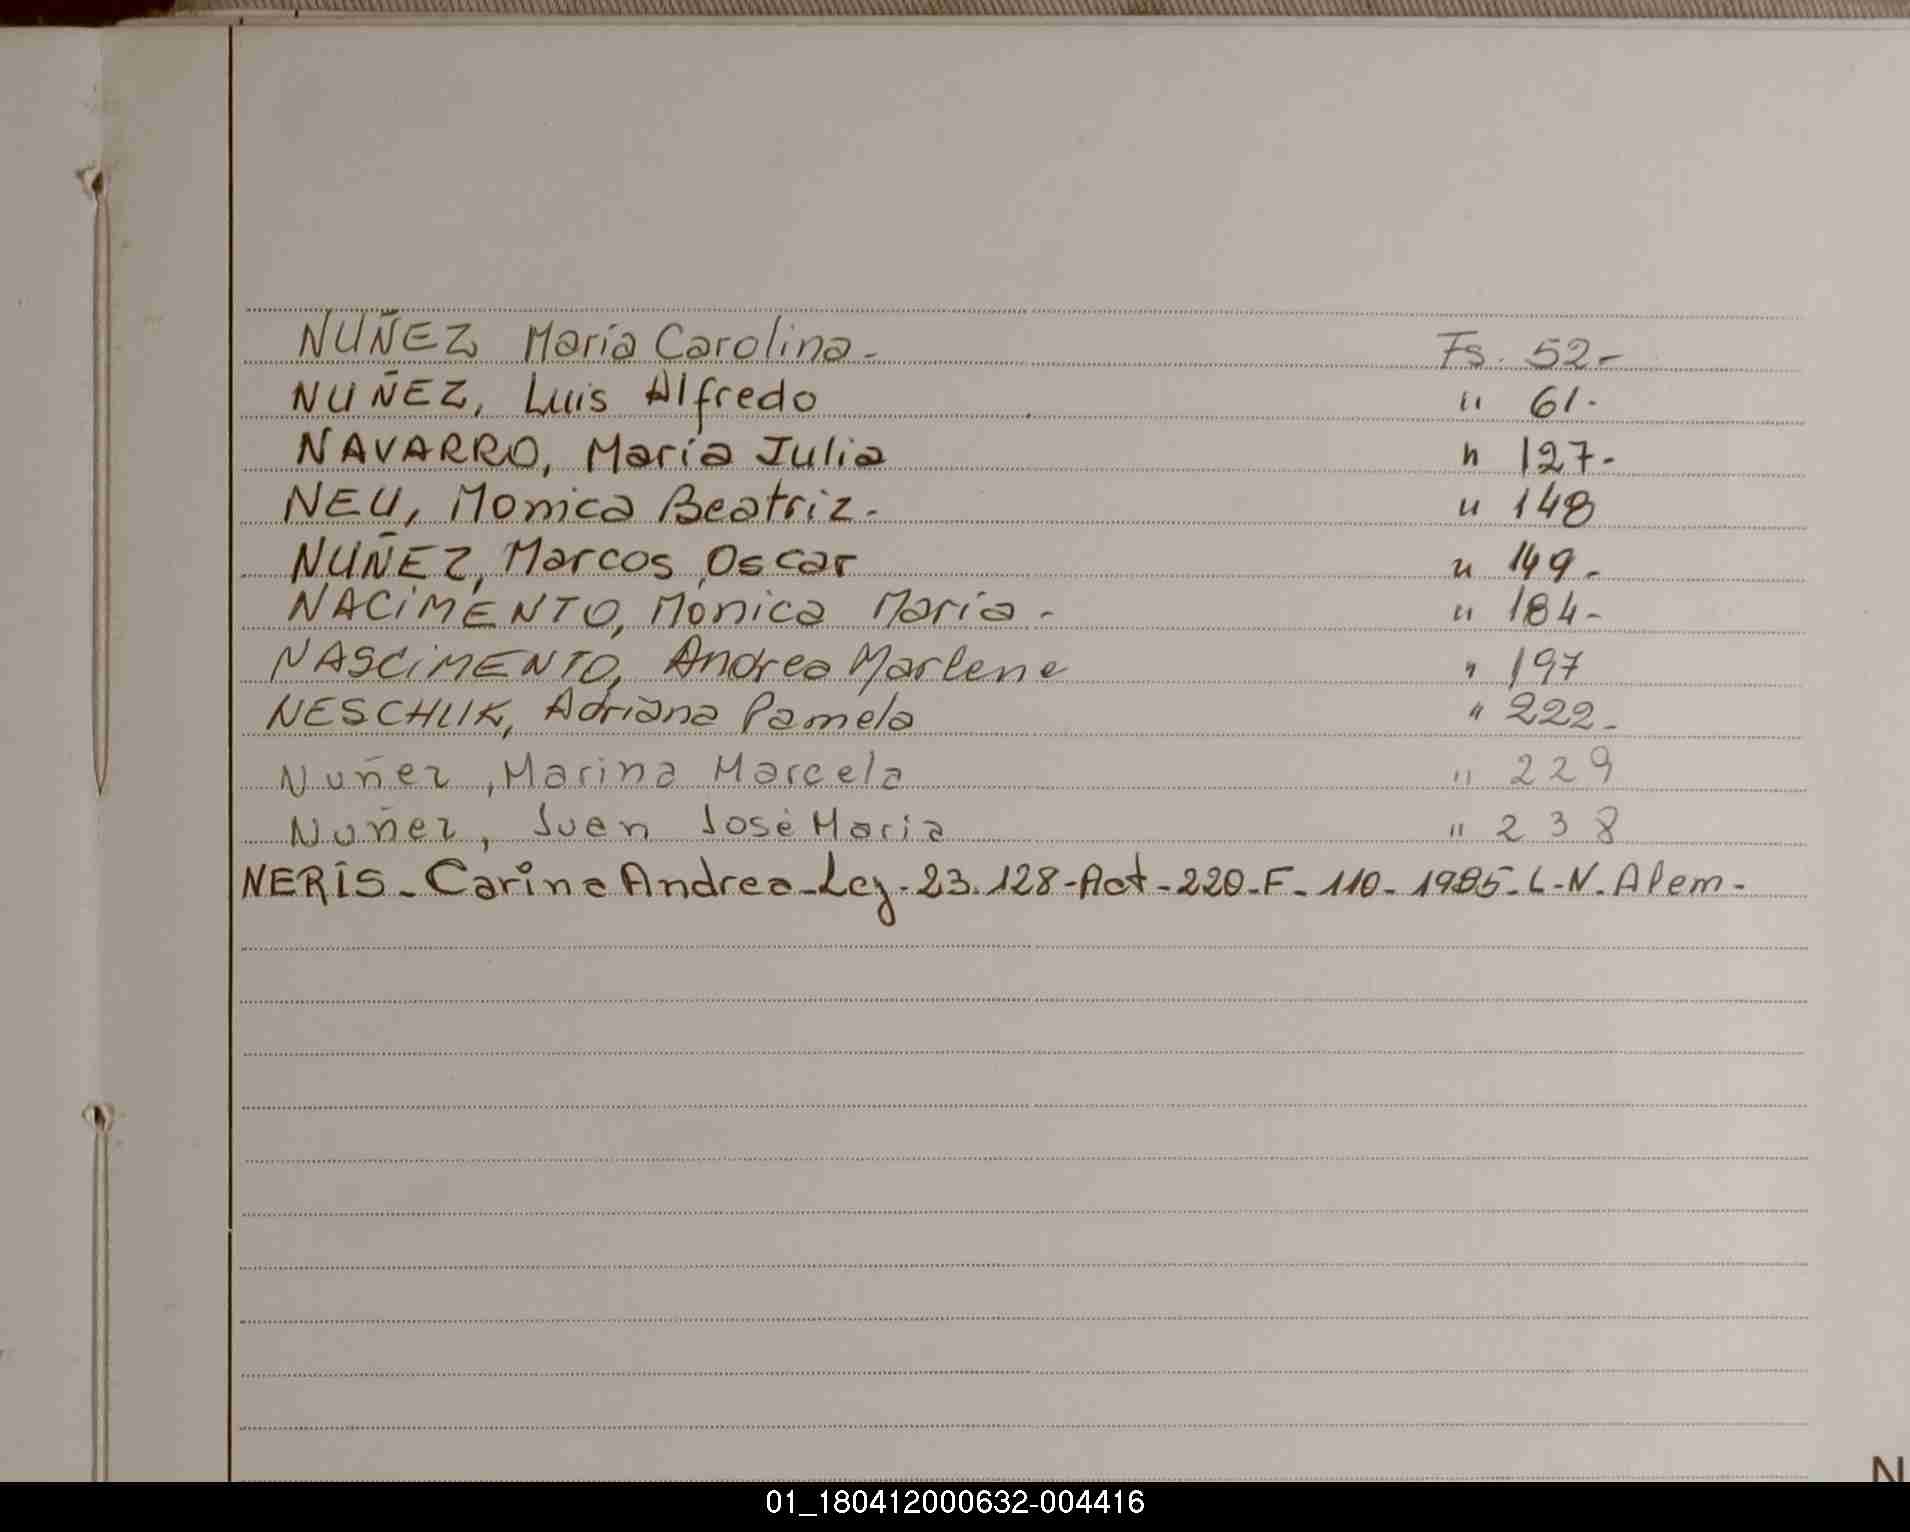 NUÑEZ María Carolina - Fs. 52 -
NUÑEZ, Luis Alfredo " 61 -
NAVARRO, María Julia " 127 -
NEU, Monica Beatriz - " 148
NUÑEZ, Marcos Oscar " 149 -
NACIMENTO, Mónica María - " 184 -
NASCIMENTO, Andrea Marlene " 197
NESCHUK, Adriana Pamela " 222 -
Nuñez, Marina Marcela " 229
Nuñez, Juan José María " 238
NERIS - Carina Andrea - Ley - 23.128 - Act - 220 - F - 110 - 1985 - L - N. Alem -
N
01_180412000632-004416